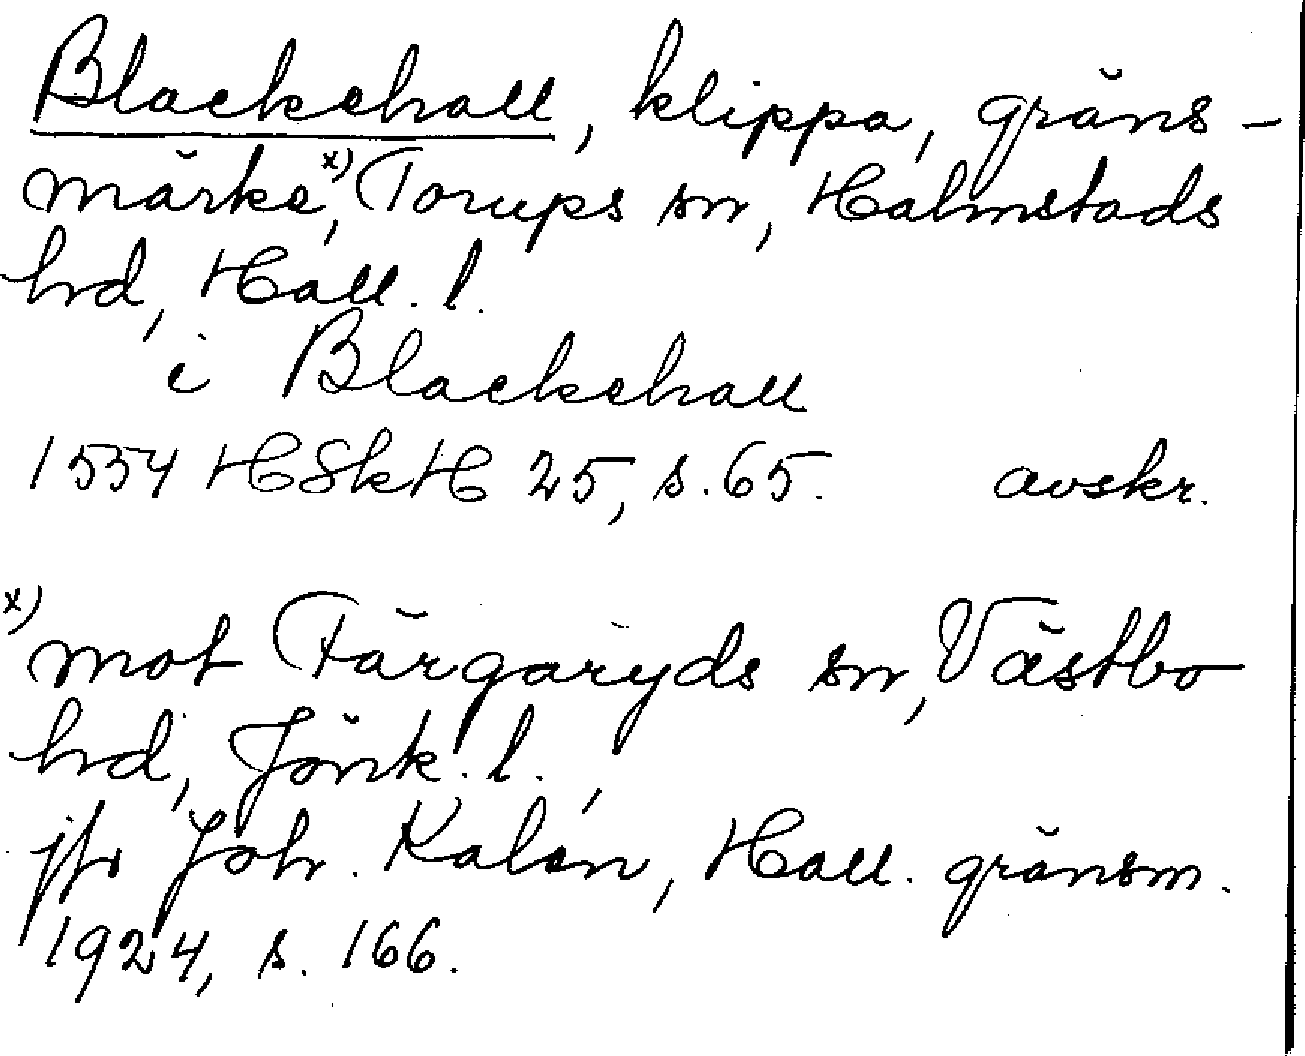 Blackehall, klippa, gräns-
märke,x) Torups sn, Halmstads
hrd, Hall. l.
i Blackehall
1554 HSkH 25, s. 65. avskr.
x) mot Färgaryds sn, Västbo
hrd, Jönk. l.,
jfr Joh. Kalén, Hall. gränsm.
1924, s. 166.